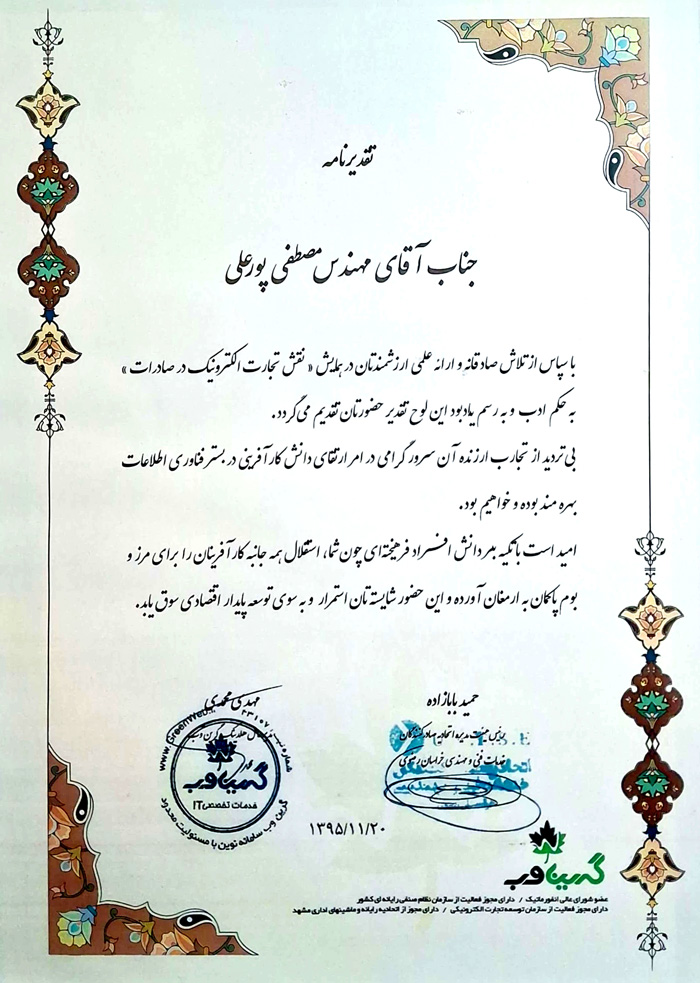 تقدیرنامه
جناب آقای مهندس مصطفی پورعلی
با سپاس از تلاش صادقانه و ارائه علمی ارزشمندتان در همایش « نقش تجارت الکترونیک در صادرات »
به حکم ادب و به رسم یادبود این لوح تقدیر حضورتان تقدیم می گردد.
بی تردید از تجارب ارزنده آن سرور گرامی در امر ارتقای دانش کارآفرینی در بستر فناوری اطلاعات
بهره مند بوده و خواهیم بود.
امید است با تکیه بر دانش افراد فرهیخته‌ای چون شما، استقلال همه جانبه کارآفرینان را برای مرز و
بوم پاکمان به ارمغان آورده و این حضور شایسته تان استمرار و به سوی توسعه پایدار اقتصادی سوق یابد.
حمید بابازاده
رئیس هیئت مدیره اتحادیه صادرکنندگان
خدمات فنی و مهندسی خراسان رضوی
مهدی محمدی
www.GreenWeb
شماره ثبت ۴۳۱۰۷
گرین وب
خدمات تخصصی IT
گرین وب سامانه نوین با مسئولیت محدود
۱۳۹۵/۱۱/۲۰
گرین وب
عضو شورای عالی انفورماتیک / دارای مجوز فعالیت از سازمان نظام صنفی رایانه ای کشور
دارای مجوز فعالیت از سازمان توسعه تجارت الکترونیکی / دارای مجوز از اتحادیه رایانه و ماشینهای اداری مشهد